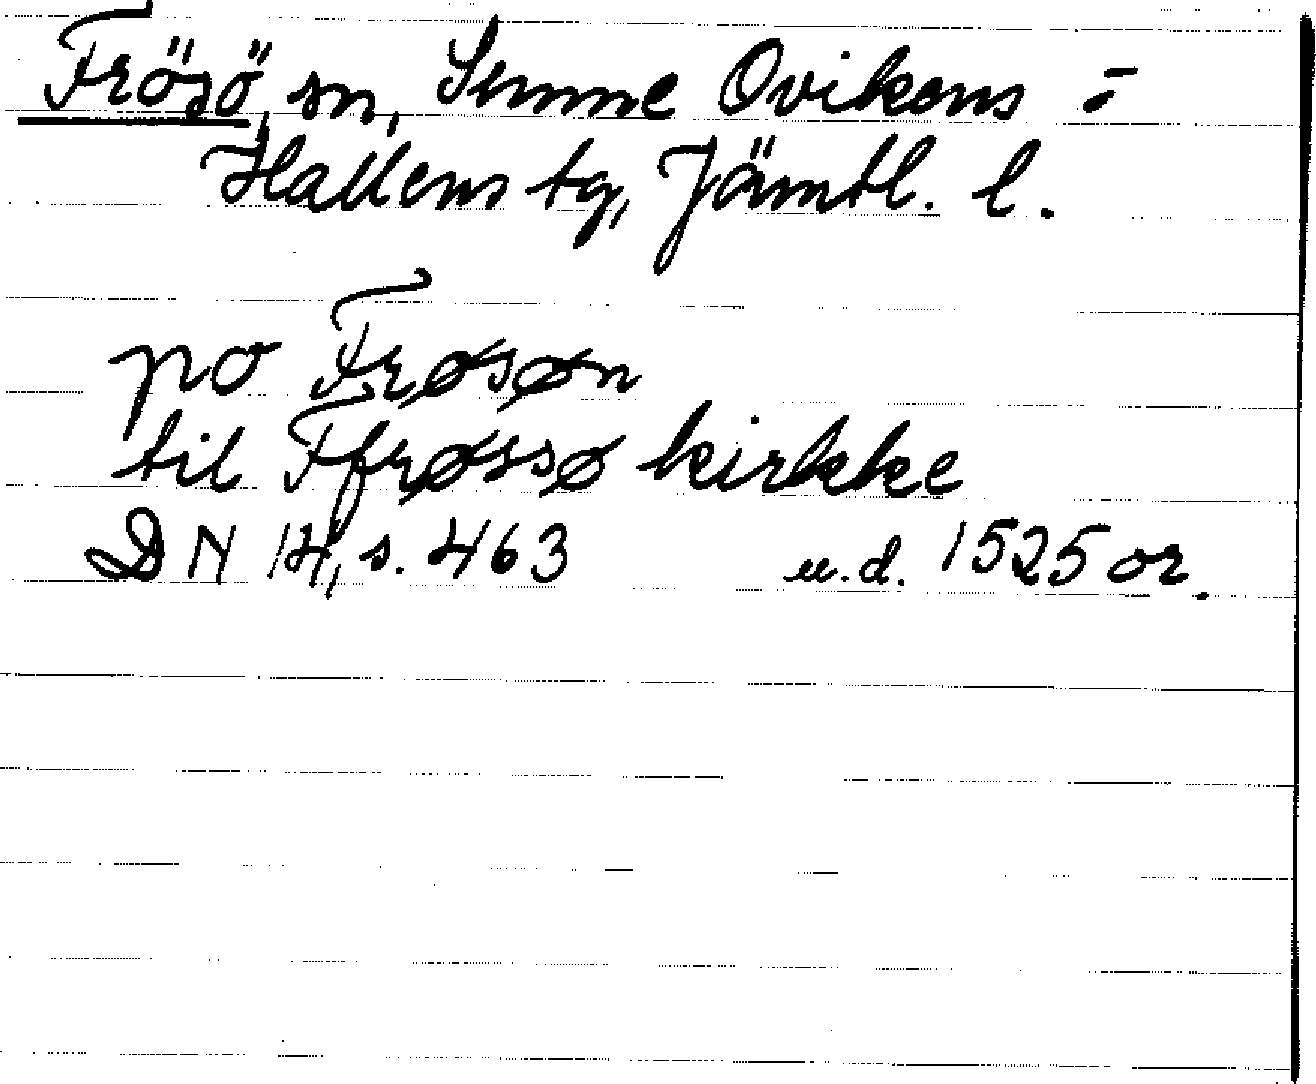 Frösö, sn, Sunne Ovikens -
Hallens tg, Jämtl. l.
po Frøsøn
til Ffrøssø kirkke
DN 14, s. 463 u.d. 1525 or.